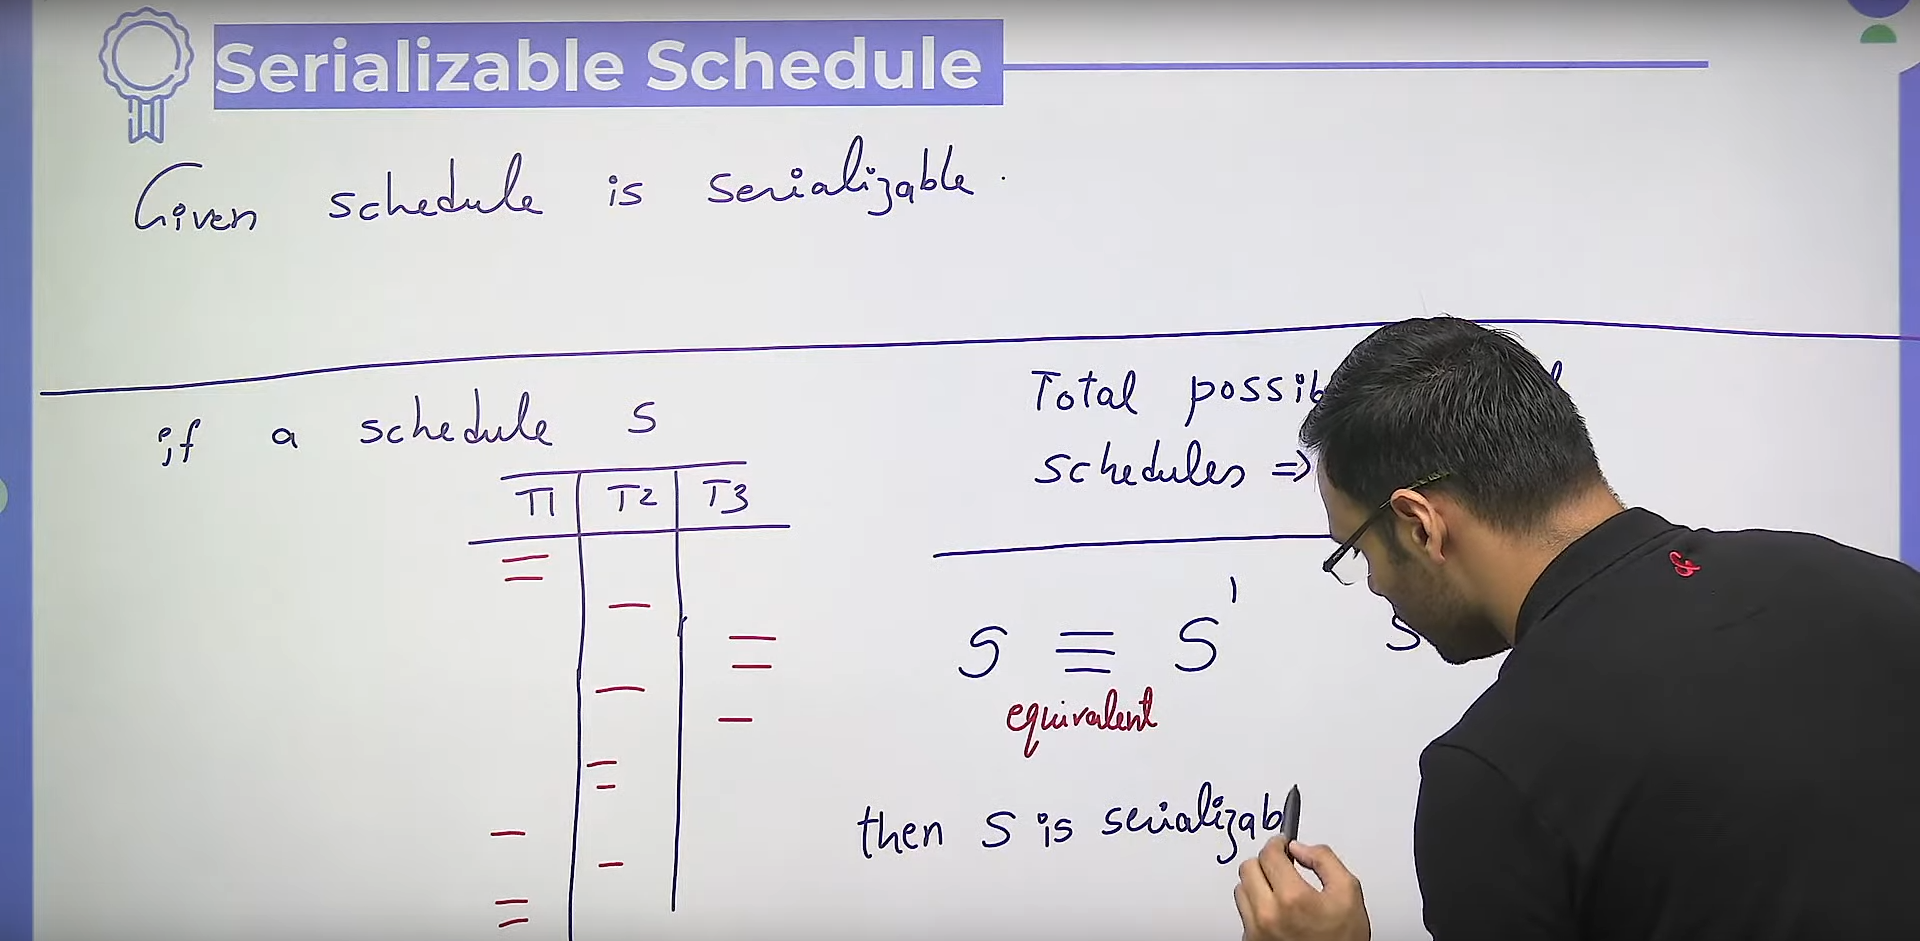 Serializable Schedule
Given schedule is serializable.
if a schedule S
T1 T2 T3
Total
schedules ⇒
S ≡ S'
equivalent
then S is